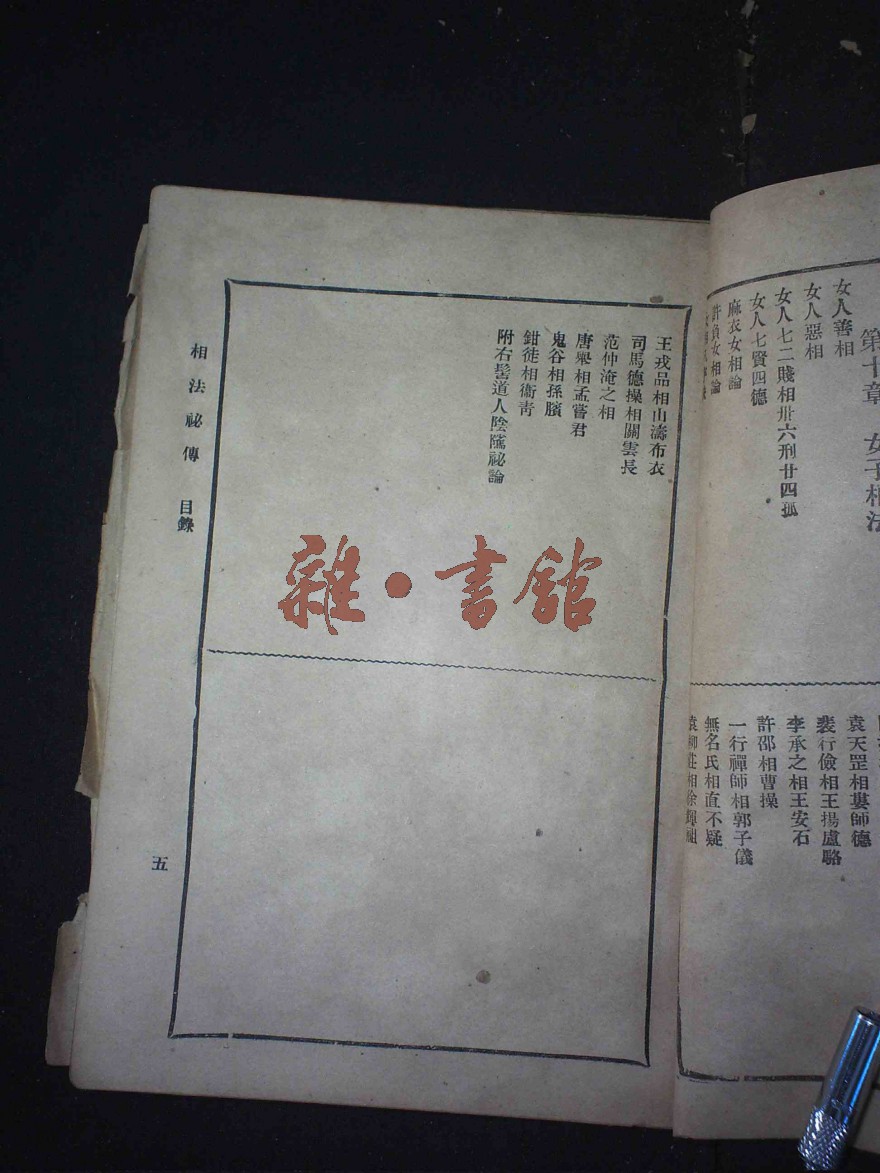 女人善相
女人惡相
女人七二賤相卅六刑廿四孤
女人七賢四德
麻衣女相論
許負女相論
袁天罡相婁師德
裴行儉相王揚盧駱
李承之相王安石
許邵相曹操
一行禪師相郭子儀
無名氏相直不疑
袁柳莊相徐輝祖
王戎品相山濤布衣
司馬德操相關雲長
范仲淹之相
唐舉相孟嘗君
鬼谷相孫臏
鉗徒相衞青
附右髻道人陰隲祕論
相法祕傳 目錄
五
雜·書館